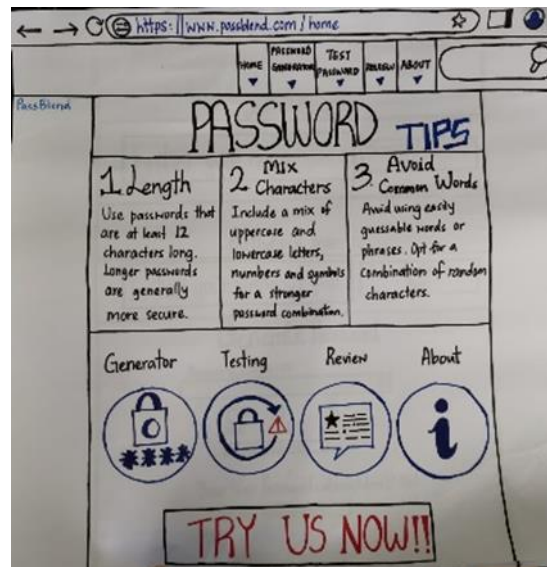 https://www.passblend.com/home
HOME
PASSWORD
GENERATOR
TEST
PASSWORD
REVIEW
ABOUT
PassBlend
PASSWORD TIPS
1 Length
Use passwords that
are at least 12
characters long.
Longer passwords
are generally
more secure.
2 Mix
Characters
Include a mix of
uppercase and
lowercase letters,
numbers and symbols
for a stronger
password combination.
3. Avoid
Common Words
Avoid using easily
guessable words or
phrases. Opt for a
combination of random
characters.
Generator
Testing
Review
About
****
i
TRY US NOW!!